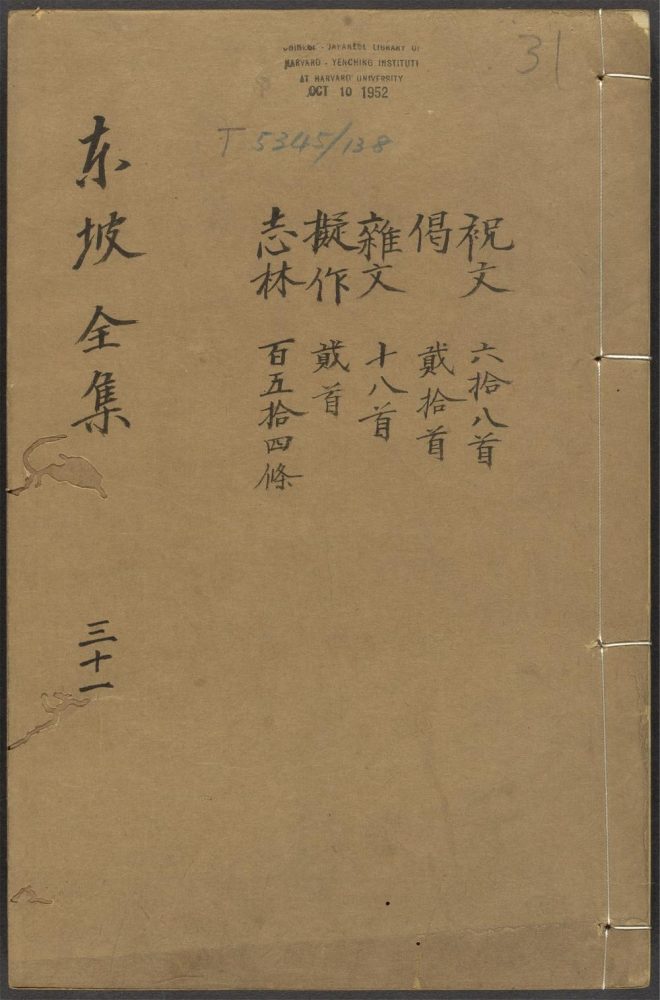 CHINESE - JAPANESE LIBRARY OF
HARVARD - YENCHING INSTITUTE
AT HARVARD UNIVERSITY
OCT 10 1952
31
T 5345/138
祝文 六拾八首
偈 貳拾首
雜文 十八首
擬作 貳首
志林 百五拾四條
东坡全集
三十一